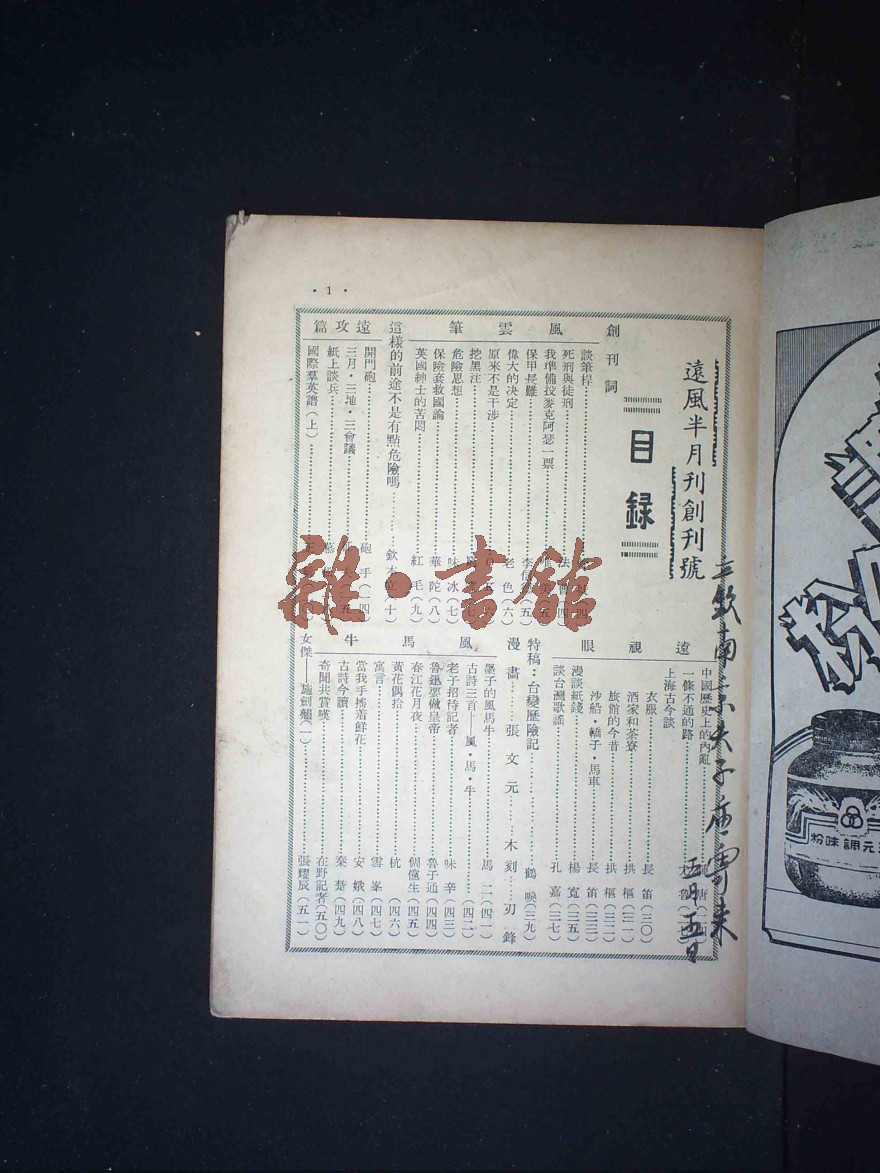 • 1 •
遠風半月刊創刊號
目錄
創刊詞
風雲筆
談筆桿
死刑與徒刑
我準備投麥克阿瑟一票
保甲長難
偉大的決定 老色(六)
原來不是干涉
挖黑注
危險思想 味冰(七)
保險套救國論 華陀(八)
英國紳士的苦悶 紅毛(九)
這樣的前途不是有點危險嗎 欽本立(十)
遠攻篇
開門砲 砲手(一四)
三月・三地・三會議
紙上談兵
國際羣英譜(上)
遠視眼
中國歷史上的內亂
一條不通的路
上海古今談
衣服 長笛(三〇)
酒家和茶寮 拱樞(三一)
旅館的今昔 拱樞(三二)
沙船・轎子・馬車 長笛(三三)
漫談紙錢 楊寬(三五)
談台灣歌謠 孔嘉(三七)
特稿:台變歷險記 鶴唳(三九)
漫畫 張文元 木刻 刃鋒
風馬牛
墨子的風馬牛 馬二(四一)
古詩三首——風・馬・牛 (四二)
老子招待記者 味辛(四三)
魯班要做皇帝 魯子通(四四)
春江花月夜 倜儻生(四五)
黃花偶拾 杭(四六)
寓言 雪峯(四七)
當我手搖着鮮花 安娥(四八)
古詩今讀 秦楚(四九)
奇聞共賞嘆 在野記者(五〇)
女傑——施劍翹(一) 張耀辰(五一)
五月五日
雜・書館
粉味調元